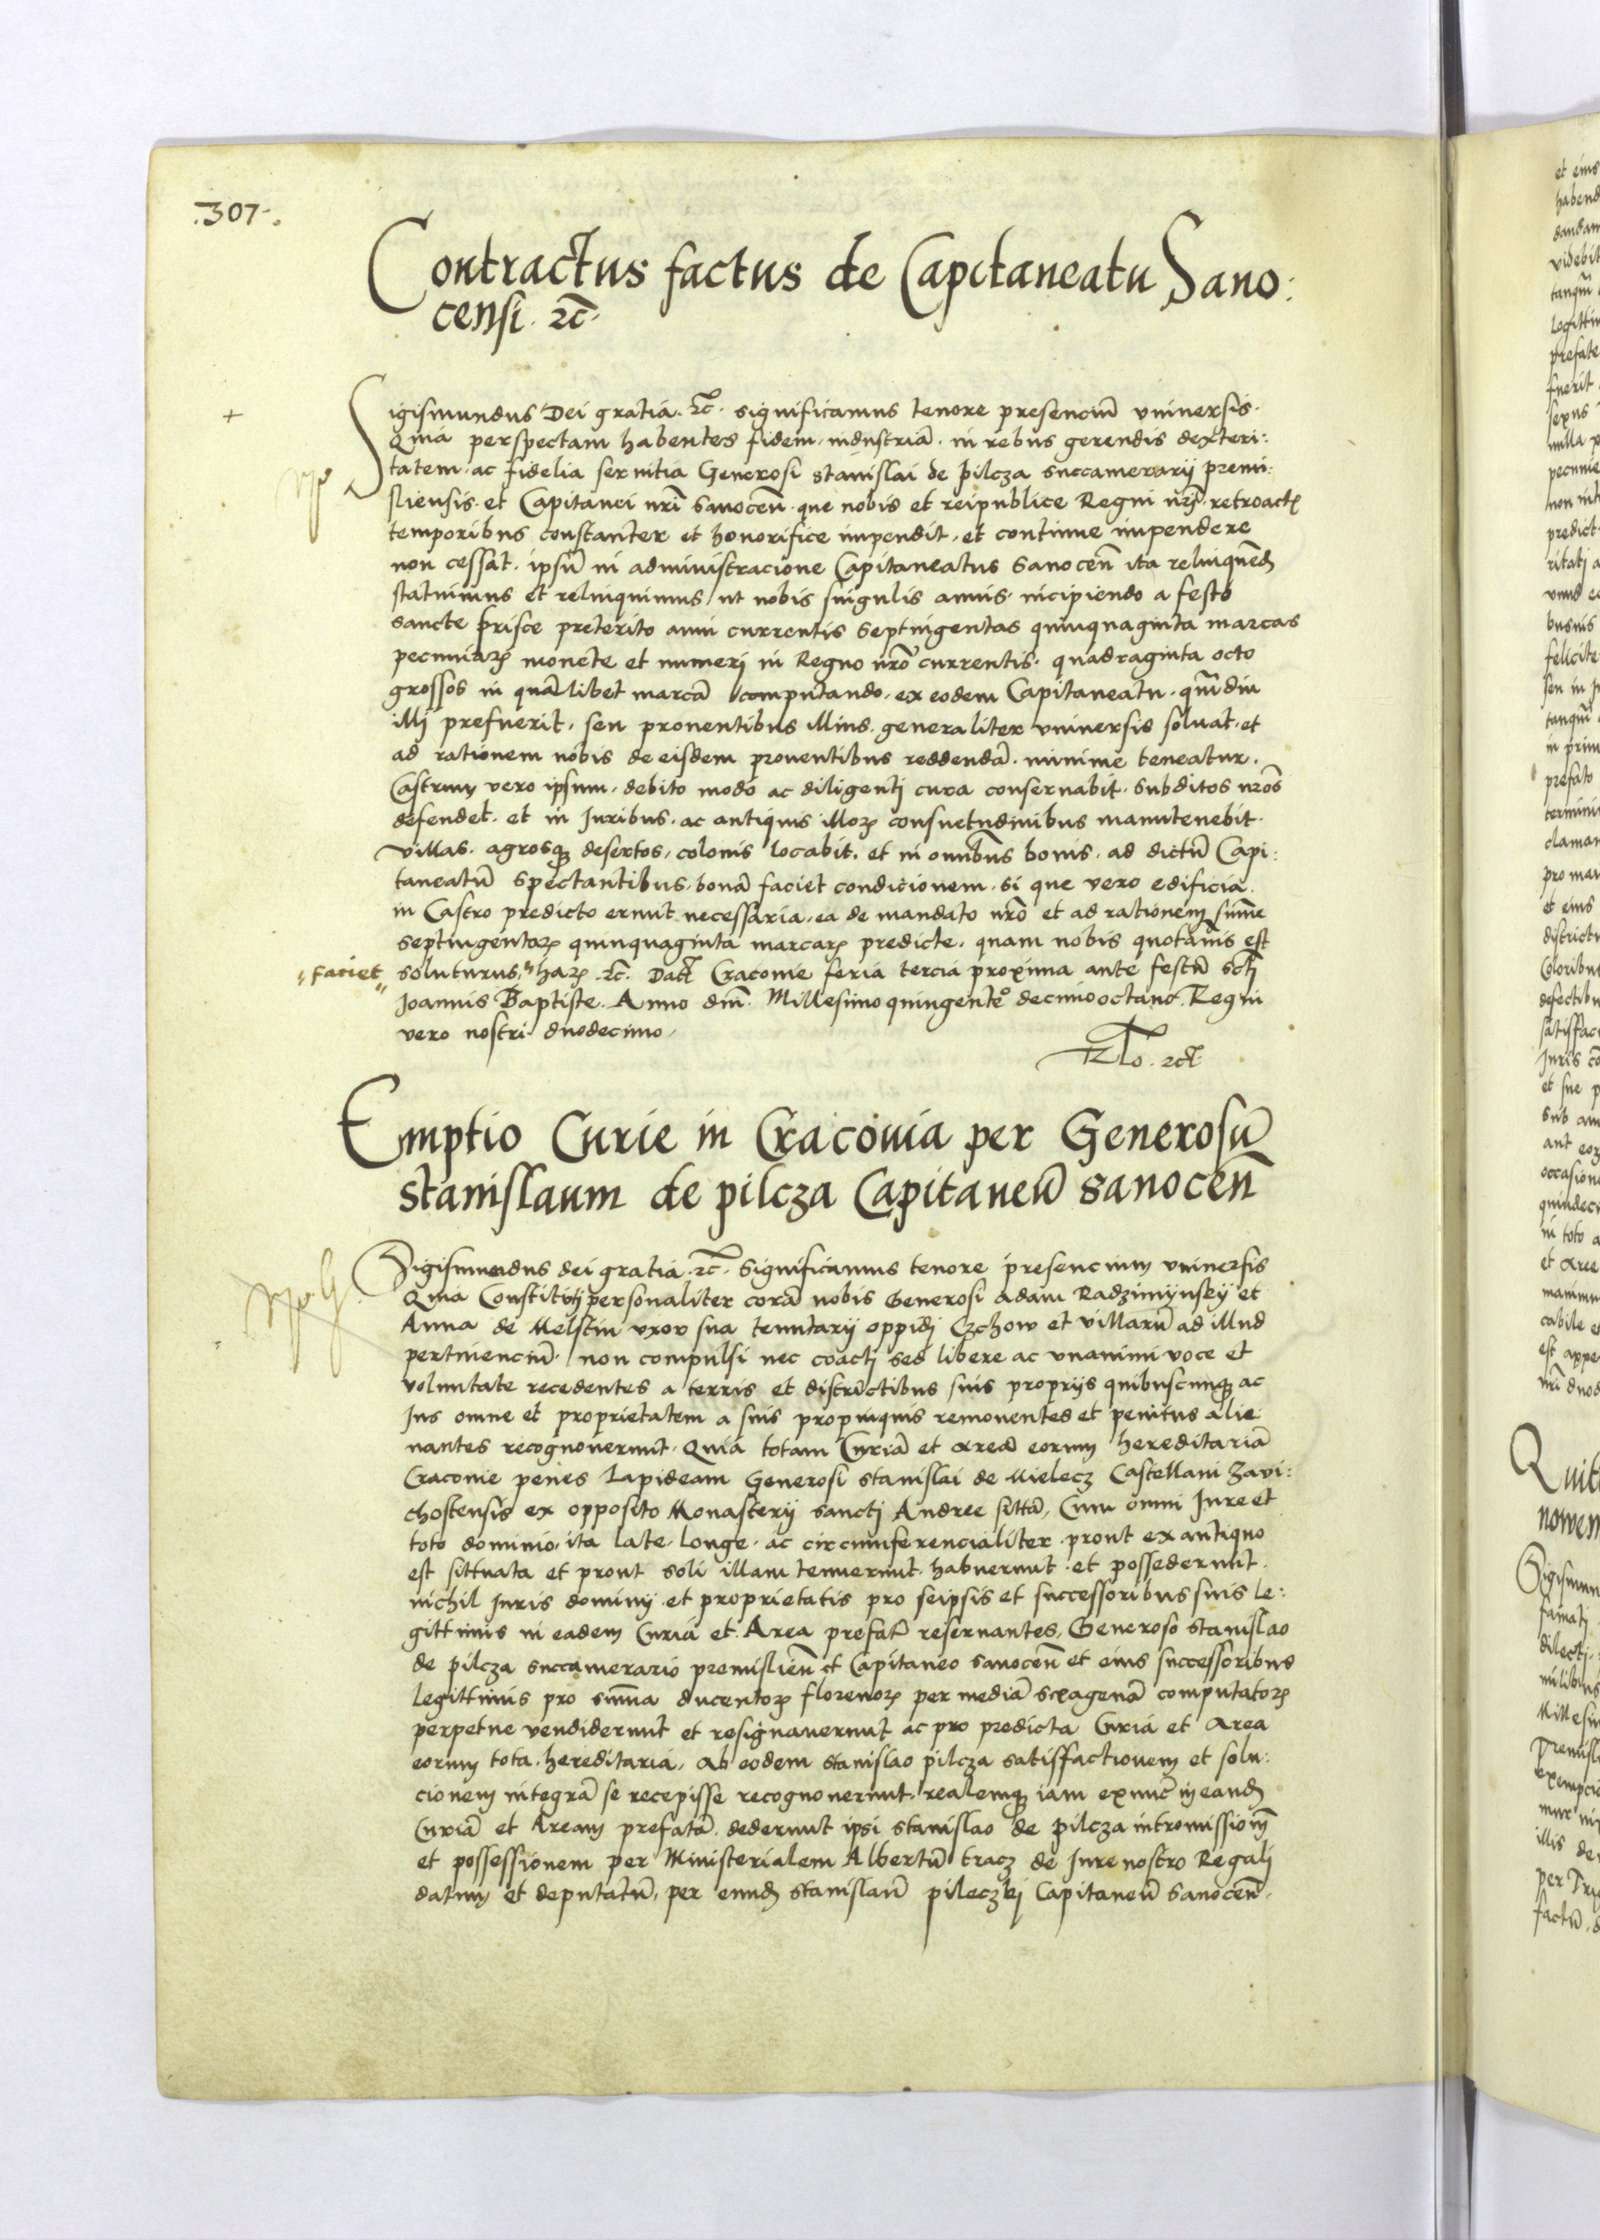 .307.
Contractus factus de Capitaneatu Sano:
censi. zc̄.
Sigismundus Dei gratia. zc̄. significamus tenore presenciū vniuersis.
Quia perspectam habentes fidem. industriā. in rebus gerendis dexteri:
tatem. ac fidelia seruitia Generosi Stanislai de Pilcza succamerarij premi:
sliensis. et Capitanei nrī Sanoceñ. que nobis et reipublice Regni nrī. retroactꝭ
temporibus constanter et honorifice impendit, et continue impendere
non cessat. ipsū in administracione Capitaneatus Sanoceñ ita relinquēd
statuimus et relinquimus, ut nobis singulis annis. incipiendo a festo
sancte Prisce preterito anni currentis Septingentas quinquaginta marcas
pecuniarꝝ monete et numeri in Regno nrō currentis. quadraginta octo
grossos in quālibet marcā computando. ex eodem Capitaneatu. qūdiu
illi prefuerit, seu prouentibus illius. generaliter vniuersis soluat. et
ad rationem nobis de eisdem prouentibus reddendā. minime teneatur.
Castrum vero ipsum. debito modo ac diligenti cura conseruabit. Subditos nrōs
defendet. et in Iuribus. ac antiquis illorꝝ consuetudinibus manutenebit.
Villas. agrosqꝫ desertos, colonis locabit. et in omnibus bonis. ad dictū Capi:
taneatū spectantibus, bonā faciet condicionem. si que vero edificia
in Castro predicto erunt necessaria, ea de mandato nrō et ad rationem sūme
septingentarꝝ quinquaginta marcarꝝ predicte. quam nobis quotānis est
"faciet" soluturus," harꝝ zc̄. Datꝭ Cracouie feria tercia proxima ante festū sctī
Joannis Baptiste. Anno dnī. Millesimo quingentē° decimooctauo. Regni
vero nostri duodecimo,
Emptio Curie in Cracouia per Generosū
Stanislaum de pilcza Capitaneū Sanoceñ
Sigismundus dei gratia. zc̄. Significamus tenore presencium vniuersis
Quia Constituti personaliter corā nobis Generosi Adam Radzimynsky et
Anna de Melstin vxor sua tenutarij oppidi Czchow et villarū ad illud
pertinenciū. non compulsi nec coacti sed libere ac vnanimi voce et
voluntate recedentes a terris et districtibus suis proprijs quibuscunqꝫ ac
Ius omne et proprietatem a suis propinquis remouentes et penitus alie
nantes recognouerunt. Quia totam Curiā et areā eorum hereditariā
Cracouie penes Lapideam Generosi Stanislai de Mielecz Castellani Zavi:
chostensis ex opposito Monasterij sancti Andree sittā, Cum omni Iure et
toto dominio. ita late. longe. ac circumferencialiter. prout ex antiquo
est sittuata et prout soli illam tenuerunt. habuerunt. et possederunt.
nichil Iuris dominij. et proprietatis pro seipsis et successoribus suis le:
gittimis in eadem Curia et Area prefatꝭ reseruantes, Generoso Stanislao
de pilcza succamerario premislieñ et Capitaneo Sanoceñ et eius successoribus
legittimis pro sūma ducentorꝝ florenorꝝ per mediā sexagenā computatorꝝ
perpetue vendiderunt et resignauerunt ac pro predicta Curia et Area
eorum tota. hereditaria, Ab eodem Stanislao pilcza satisffactionem et solu:
cionem integrā se recepisse recognouerunt. realemqꝫ iam exnūc in eandē
Curiā et Aream prefatā. dederunt ipsi Stanislao de pilcza intromissionē
et possessionem per Ministerialem Albertū tracz de Iure nostro Regali
datum et deputatū, per eundē Stanislaū pileczki Capitaneū Sanoceñ.